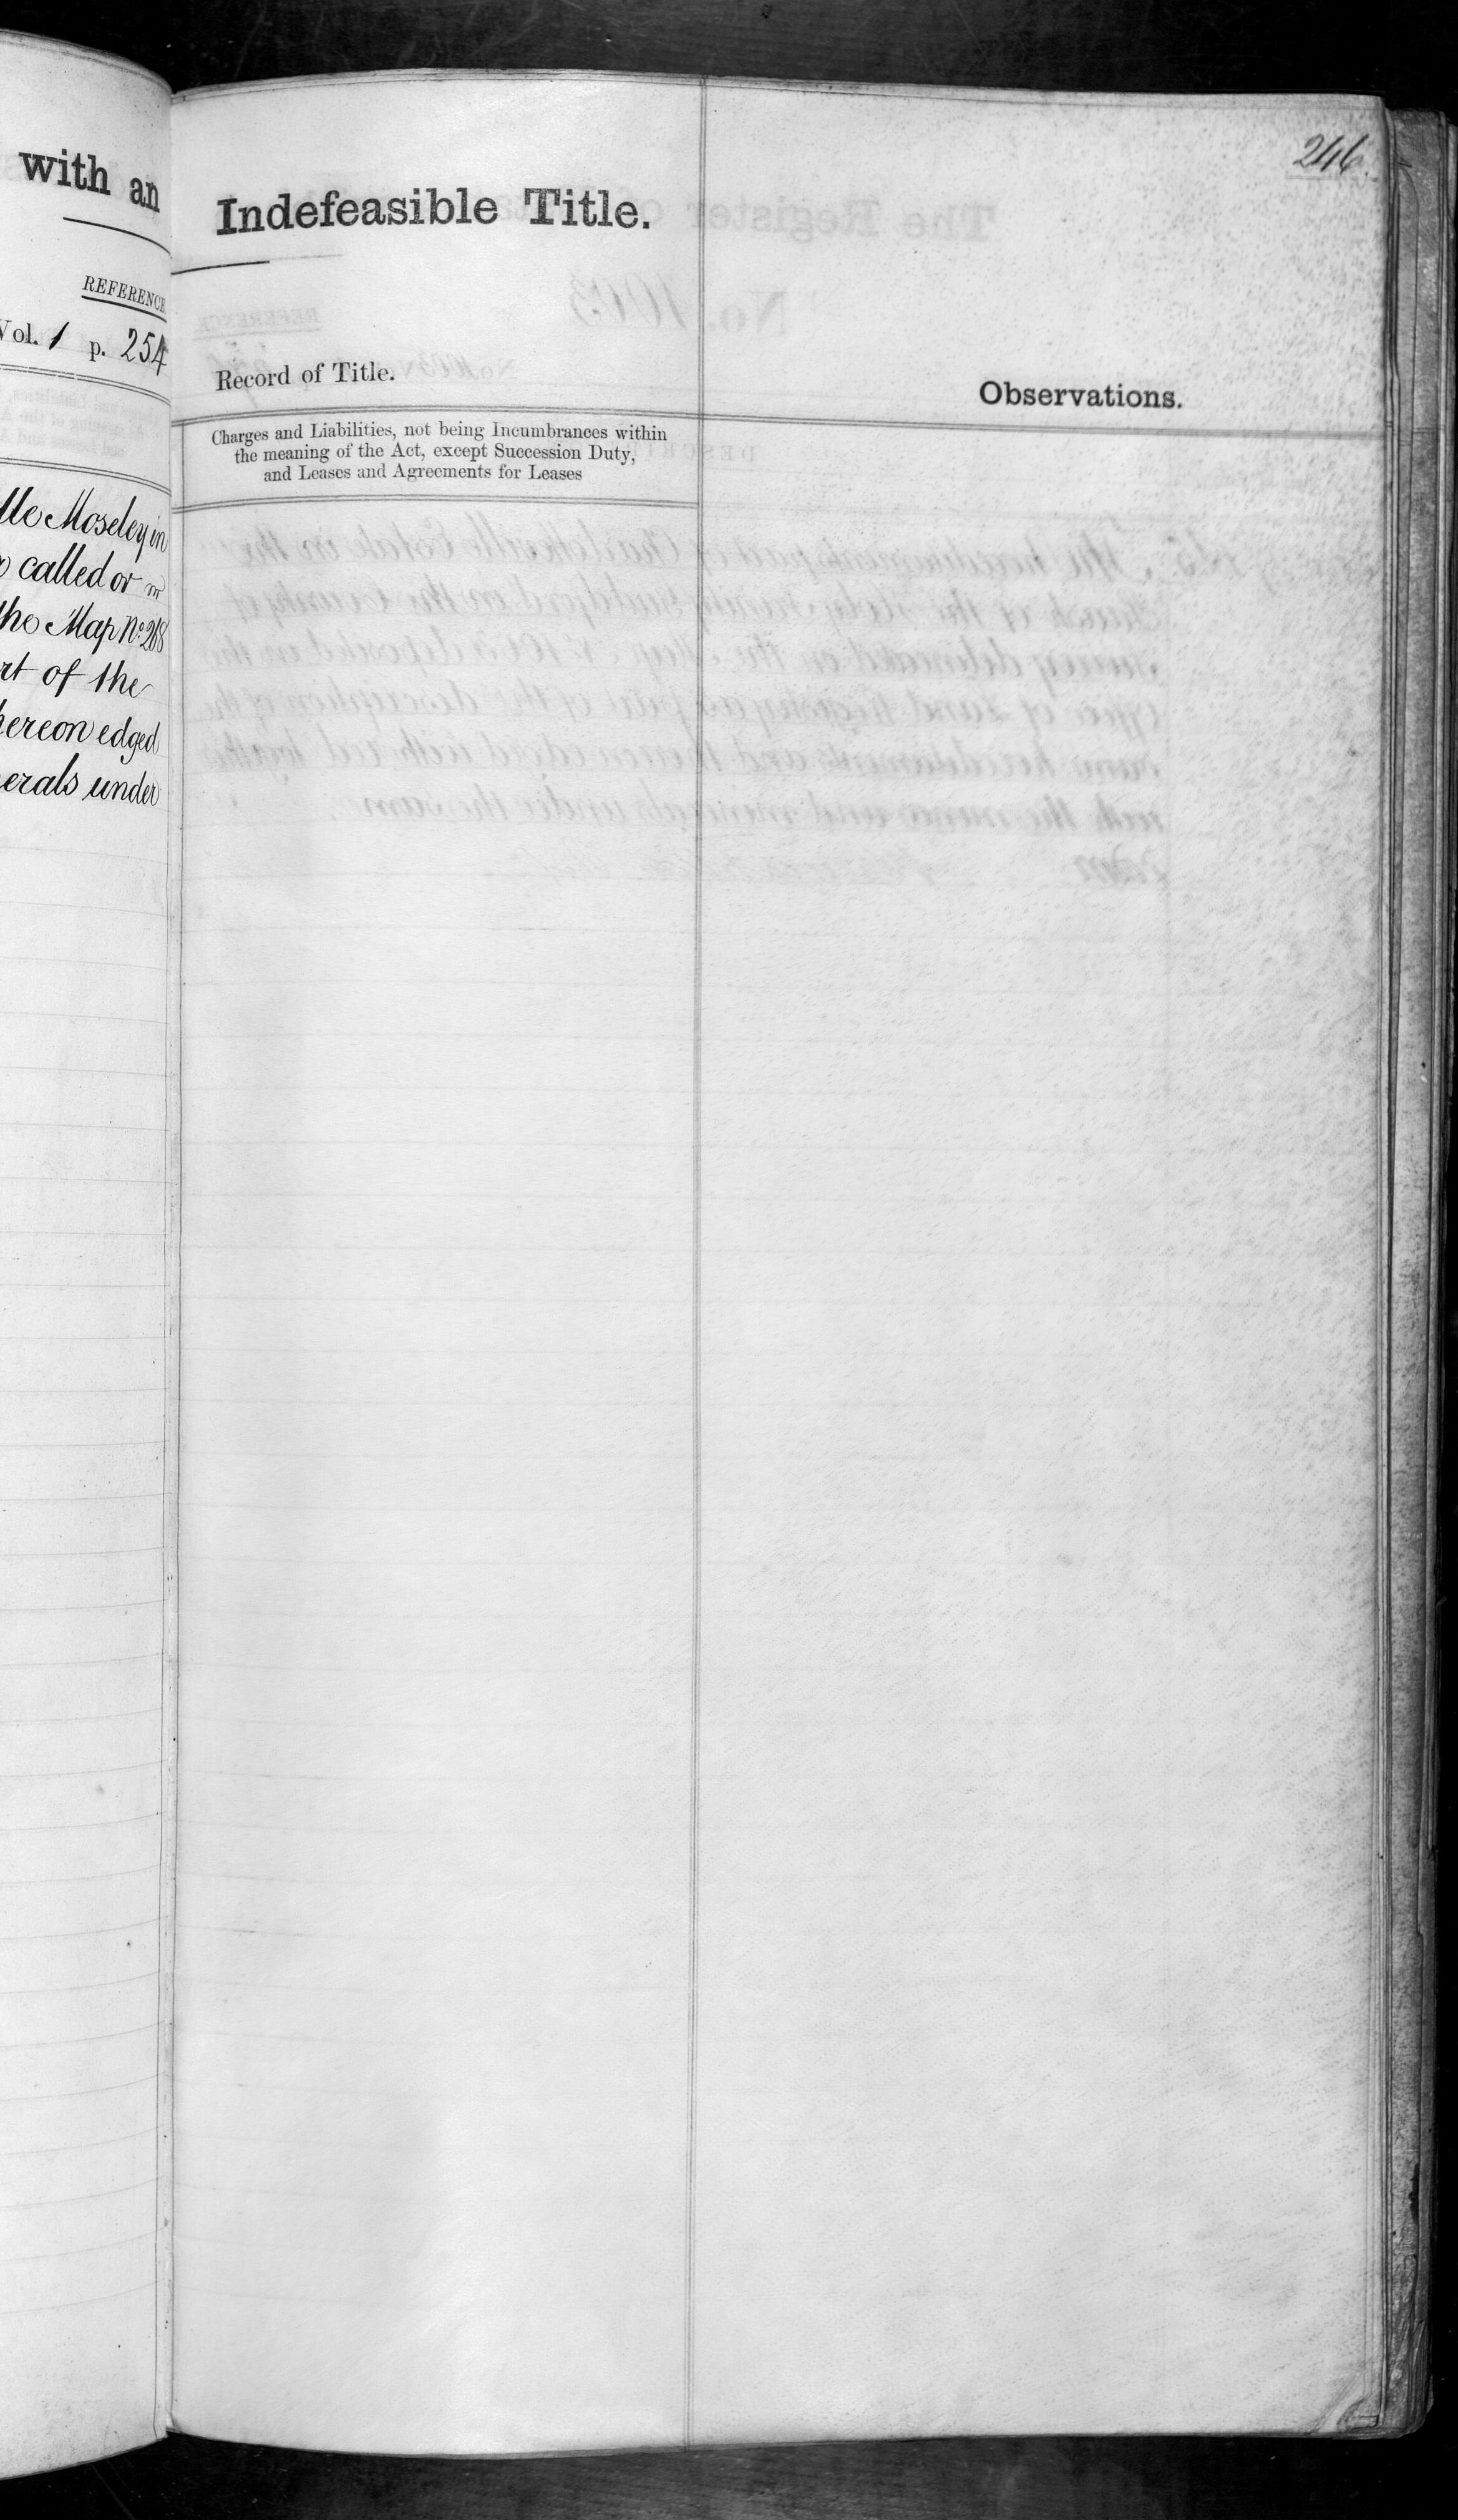 with an
REFERENCE
Vol. 1 p. 254
lle Moseley in
called or in
the Map No. 268
rt of the
hereon edged
erals under
246.
Indefeasible Title.
Record of Title.
Observations.
Charges and Liabilities, not being Incumbrances within
the meaning of the Act, except Succession Duty,
and Leases and Agreements for Leases